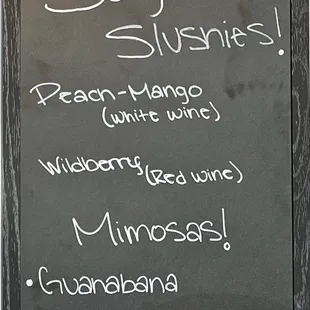 Slushies!
Peach-Mango
(white wine)
Wildberry (Red wine)
Mimosas!
• Guanabana